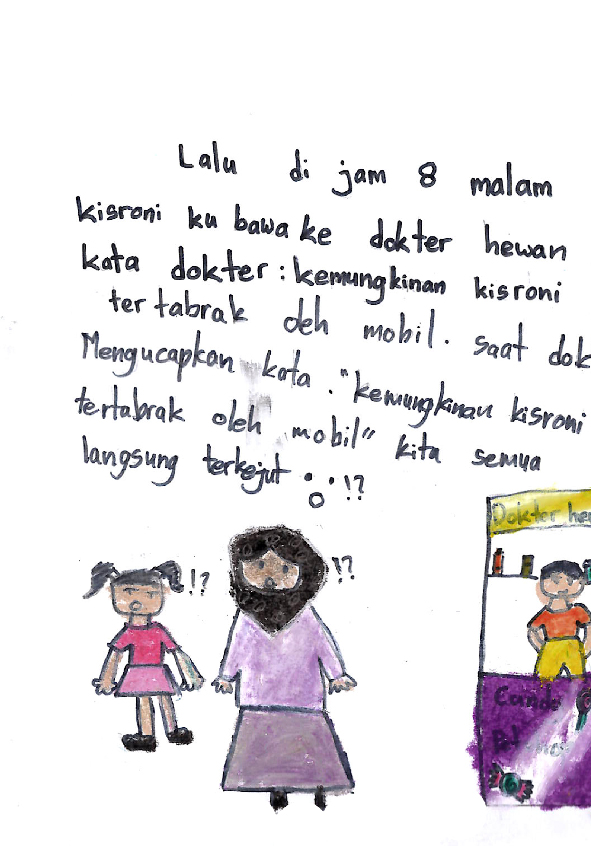 Lalu di jam 8 malam
kisroni ku bawa ke dokter hewan
kata dokter : kemungkinan kisroni
tertabrak oleh mobil. saat dok
Mengucapkan kata. "kemungkinan kisroni
tertabrak oleh mobil" kita semua
langsung terkejut !?
!?
!?
Dokter he